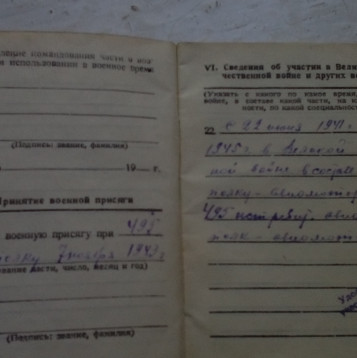 ующие командования части о воз
и использовании в военное время
(Подпись: звание, фамилия)
19 г.
Принятие военной присяги
военную присягу при 495
полку 7 ноября 1943 г.
части, число, месяц и год)
(Подпись: звание, фамилия)
VI. Сведения об участии в Вели
чественной войне и других во
(Указать с какого по какое время,
войне, в составе какой части, на к
ности, по какой специальнос
22 с 22 июня 1941
1945 г в Великой
ной войне в
полку - авиамотор
495 истребит авиа
полк - авиамот